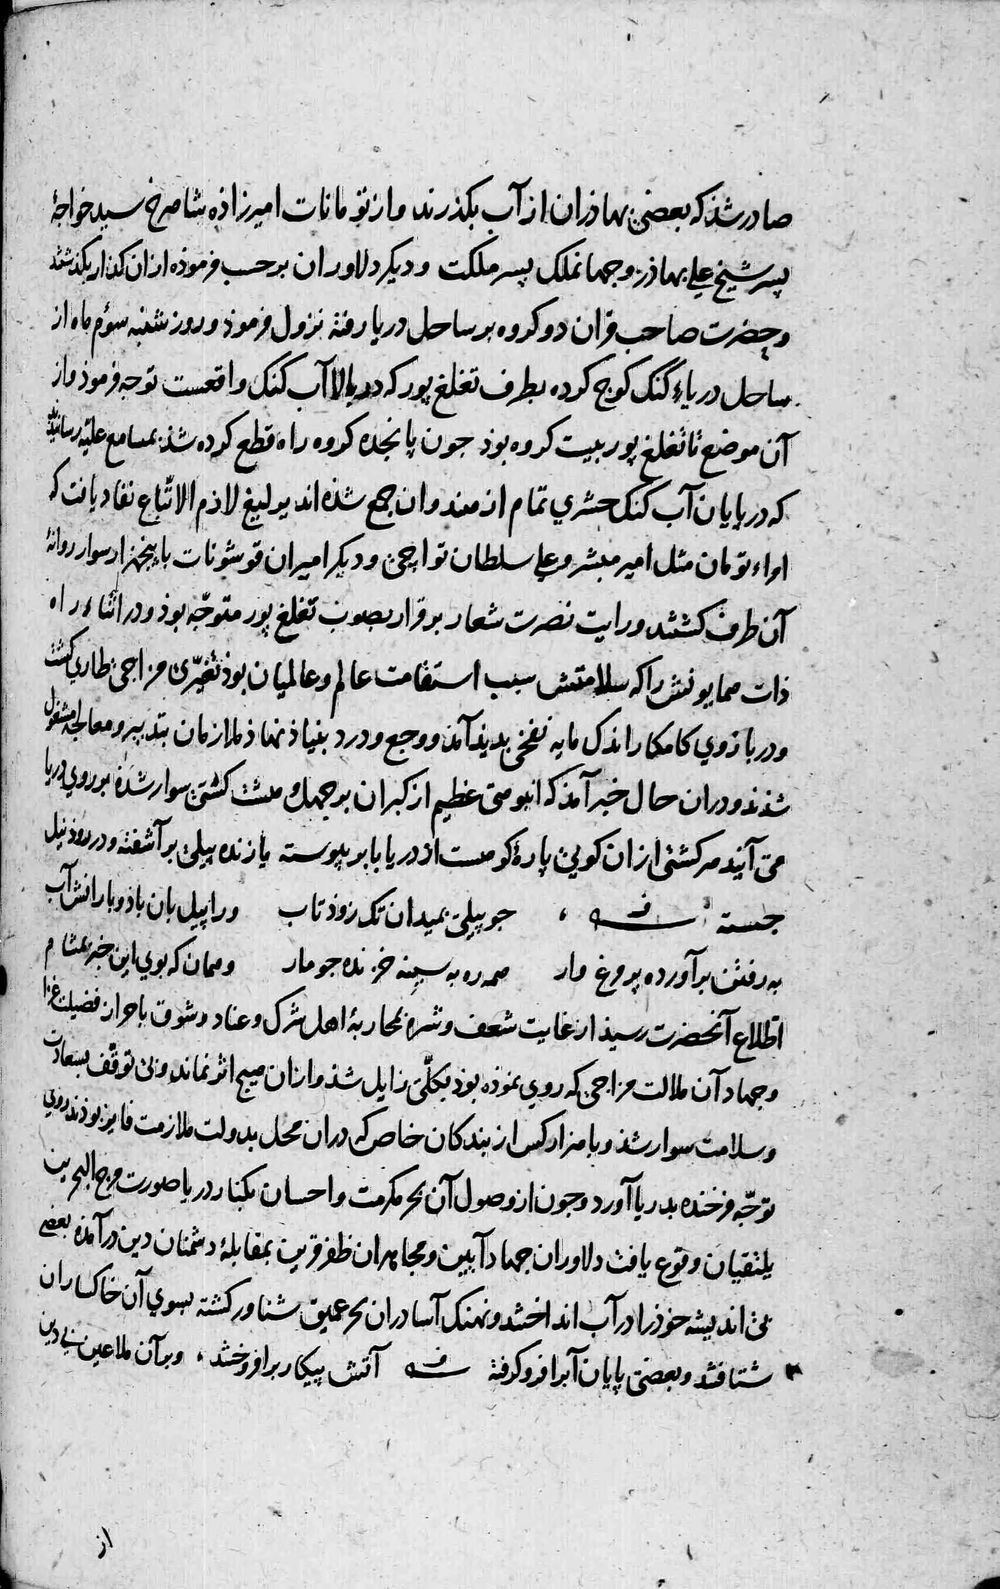 صادر شذ که بعضی بهاذران از آب بکذرند و از تومانات امیرزاذه شاهرخ سید خواجهٔ
پسر شیخ علی بهاذر و جهانملک پسر ملکت و دیکر دلاوران بر حسب فرموذه از ان کذار بکذشتند
و حضرت صاحب قران دو کروه بر ساحل دریا رفته نزول فرموذ و روز شنبه سؤم ماه از
ساحل دریاء کنک کوچ کرده بطرف تغلغ پور که در بالاآب کنک واقعست توجه فرموذ و از
آن موضع تا تغلغ پور بیست کروه بوذ جون پانجده کروه راه قطع کرده شذ بمسامع علیّه رسانیدند
که در پایان آب کنک حشری تمام از هندوان جمع شذه اند یرلیغ لازم الاتّباع نفاذ یافت که
امراء تومان مثل امیر مبشر و علی سلطان تواچی و دیکر امیران قوشونات با پنجهزار سوار روانهٔ
آن طرف کشتند و رایت نصرت شعار بر قرار بصوب تغلغ پور متوجّه بوذ و در اثناء راه
ذات همایونش را که سلامتش سبب استقامت عالم و عالمیان بوذ تغیّری مزاجی طاری کشت
و در بازوی کامکار اندک مایه نفخی بدیذ آمذ و وجع و درد بنیاذ نهاذ ملازمان بتدبیر و معالجه مشغول
شذند و دران حال خبر آمذ که انبوهی عظیم از کبران بر چهل و هشت کشتی سوار شذهٔ بر روی دریا
می آیند هر کشتی از ان کویی پارهٔ کوهست از دریا بابر پیوسته یا زنده پیلی بر آشفته و در روذ نیل
جسته جو پیلی بمیدان تک زوذ تاب ورا پیل بان باذ و بارانش آب
به رفتن بر آورده پر مرغ وار همه ره به سینه خزنده جو مار و همان که بوی این خبر بمشام
اطّلاع آنحضرت رسیذ از غایت شعف و شره بمحاربهٔ اهل شرک و عناد و شوق باحراز فضیلت غزا
و جهاد آن ملالت مزاجی که روی نموذه بوذ بکلّی زایل شذ و از ان هیچ اثر نماند و بی توقّف بسعادت
و سلامت سوار شذ و با هزار کس از بندکان خاص که دران محل بدولت ملازمت فایز بوذند روی
توجّه فرخنده بدریا آورد و جون از وصول آن بحر مکرمت و احسان بکنار دریا صورت مرج البحرین
یلتقیان وقوع یافت دلاوران جهاد آیین و مجاهدان ظفر قرین بمقابلهٔ دشمنان دین در آمذه بعضی
بی اندیشه خوذ را در آب انداختند و نهنک آسا دران بحر عمیق شناور کشته بسوی آن خاکساران
شتافتند و بعضی پایان آب را فرو کرفته آتش پیکار بر افروختند، و بر آن ملاعین بی دین
از